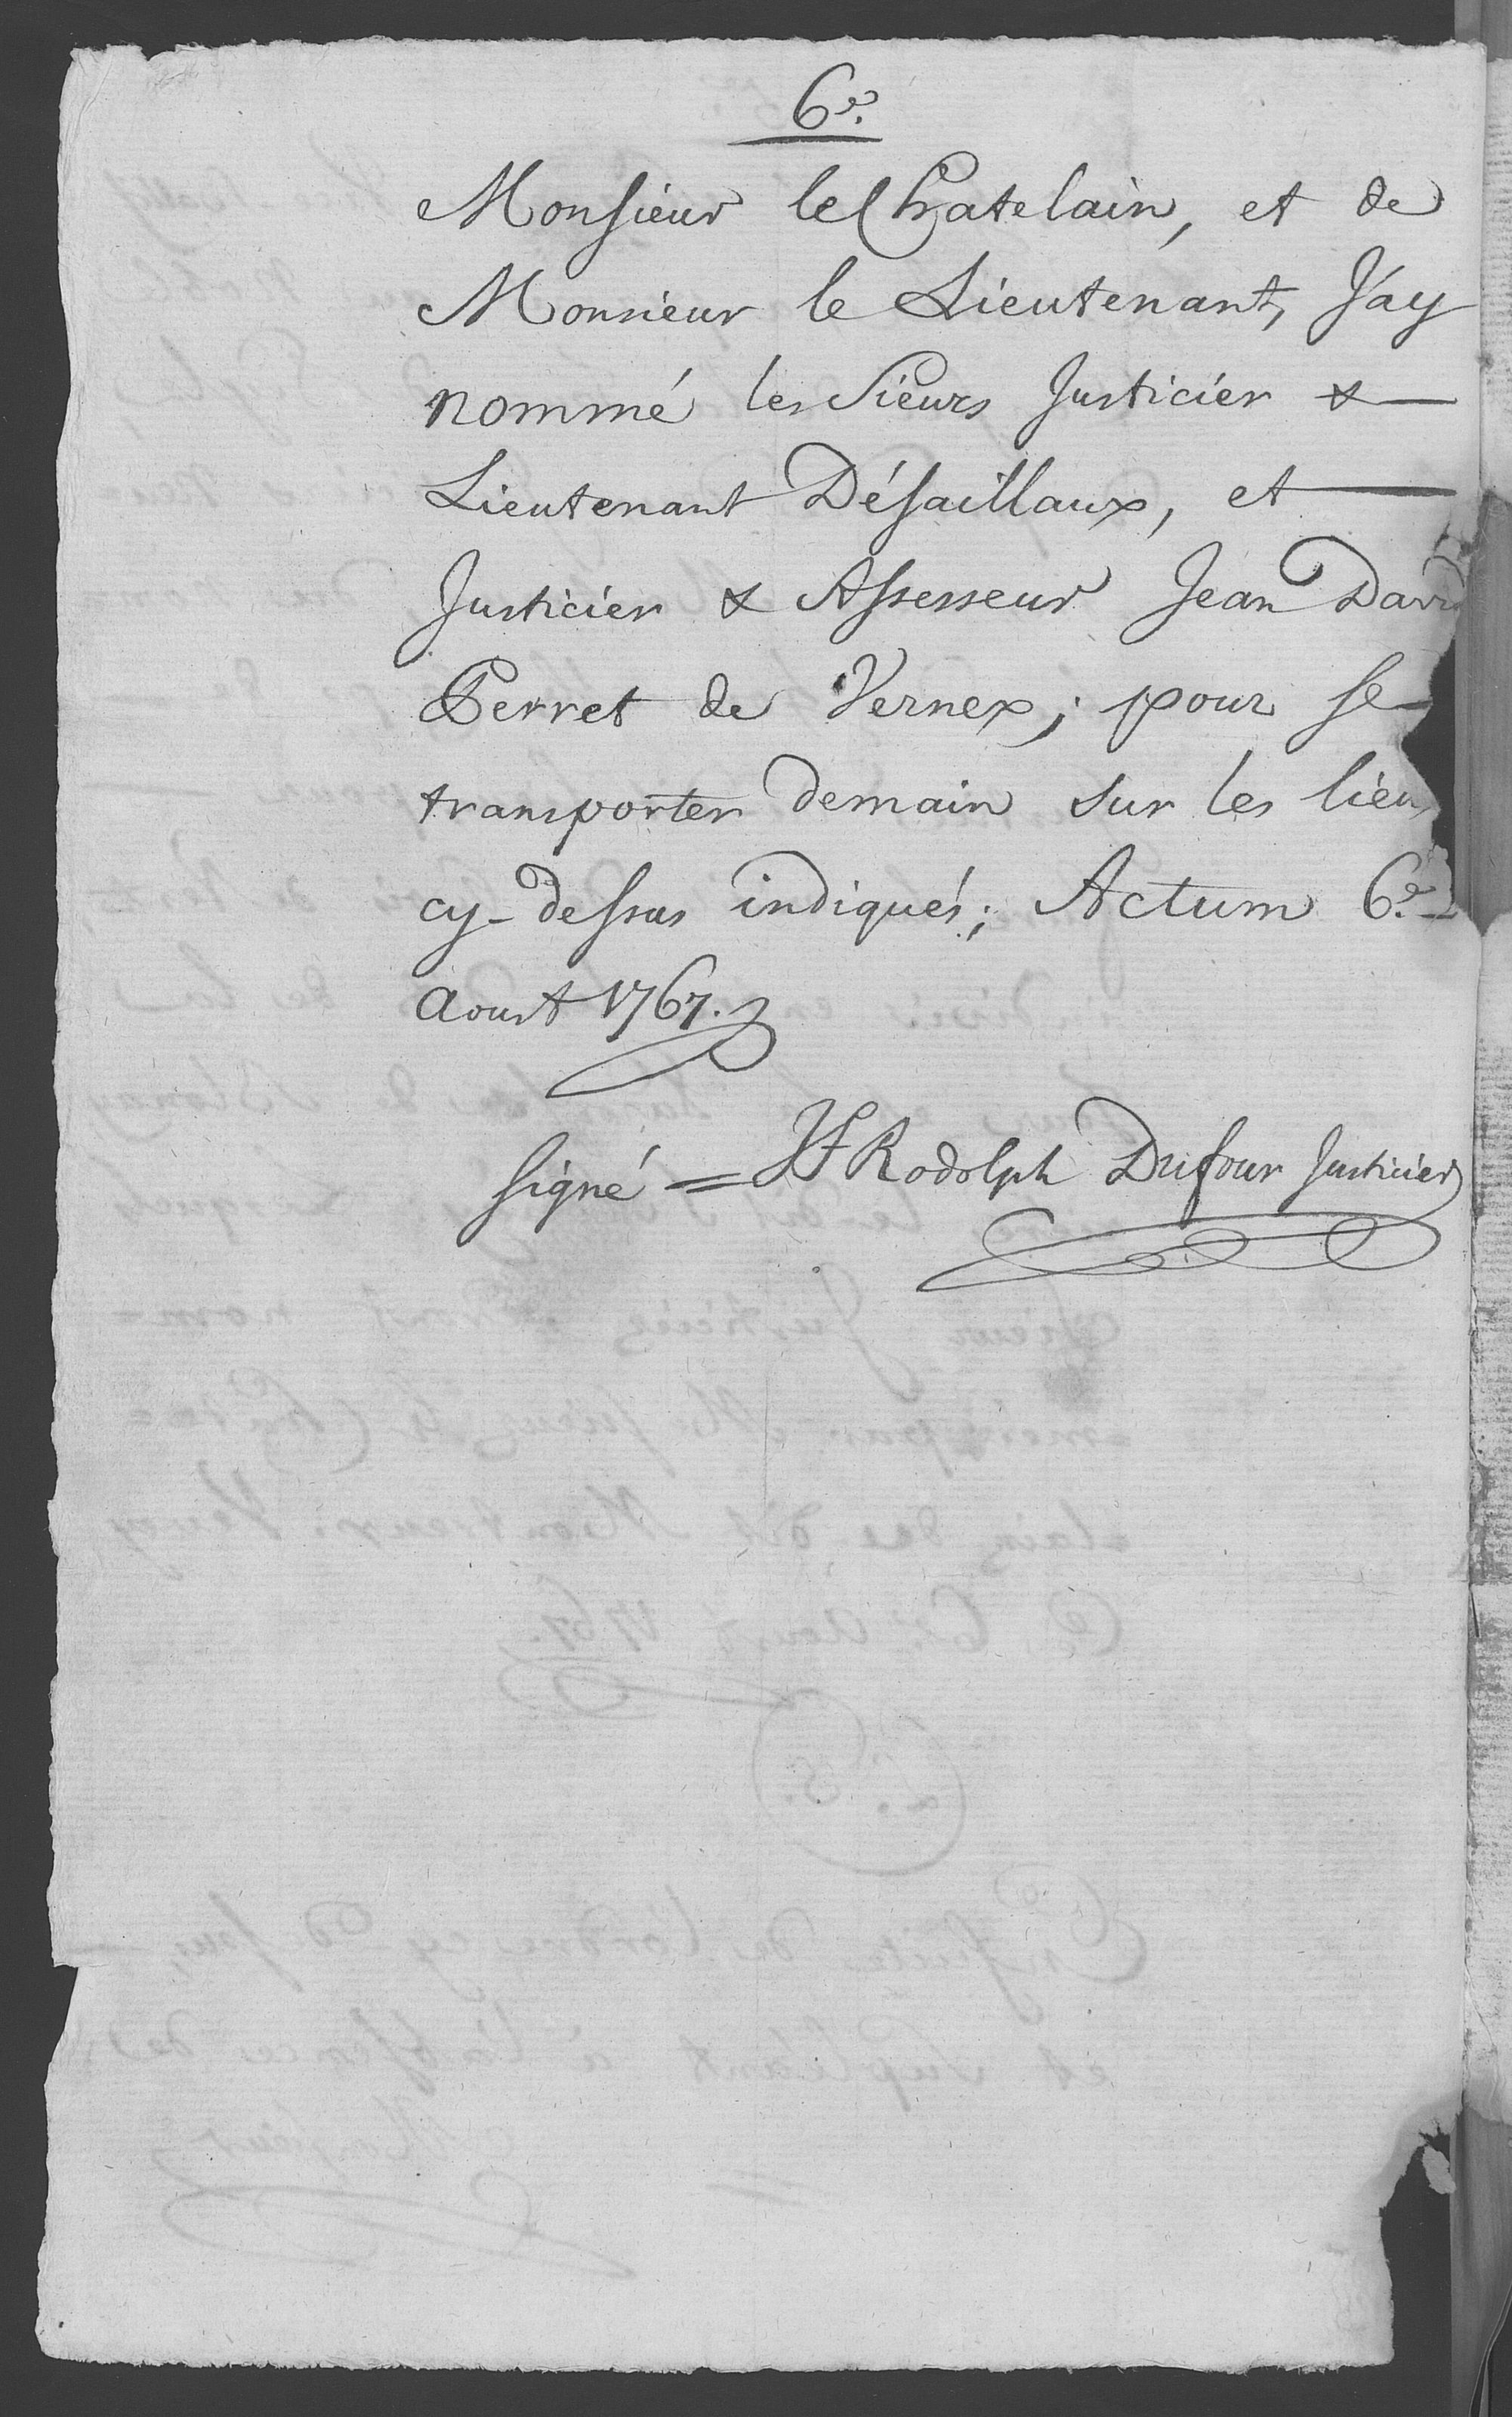 6e.
Monsieur le Chatelain, et de
Monsieur le Lieutenant, J'ay
nommé les Sieurs Justicier &
Lieutenant Désaillaux, et
Justicier & Assesseur Jean David
Perret de Vernex; pour se
transporter demain sur les lieux
cy-dessus indiqués; Actum 6e.
Aoust 1767.
signé = Rodolph Dufour Justicier